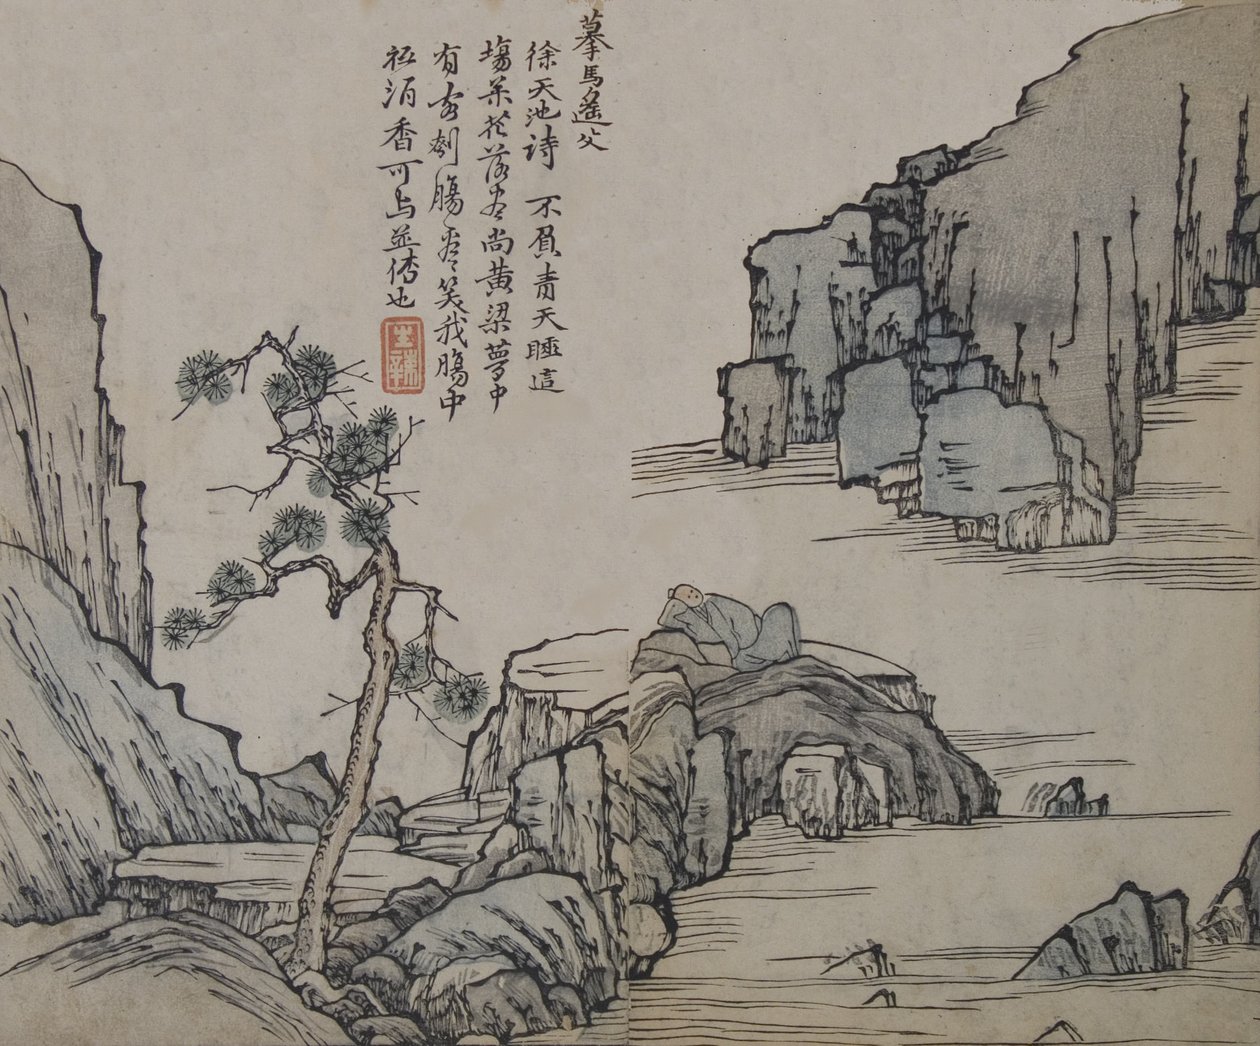 摹馬遙父
徐天池詩 不負青天睡這
塲枀花落盡尚黃粱夢中
有客刳腸看笑我腸中
祗酒香可与並傳也